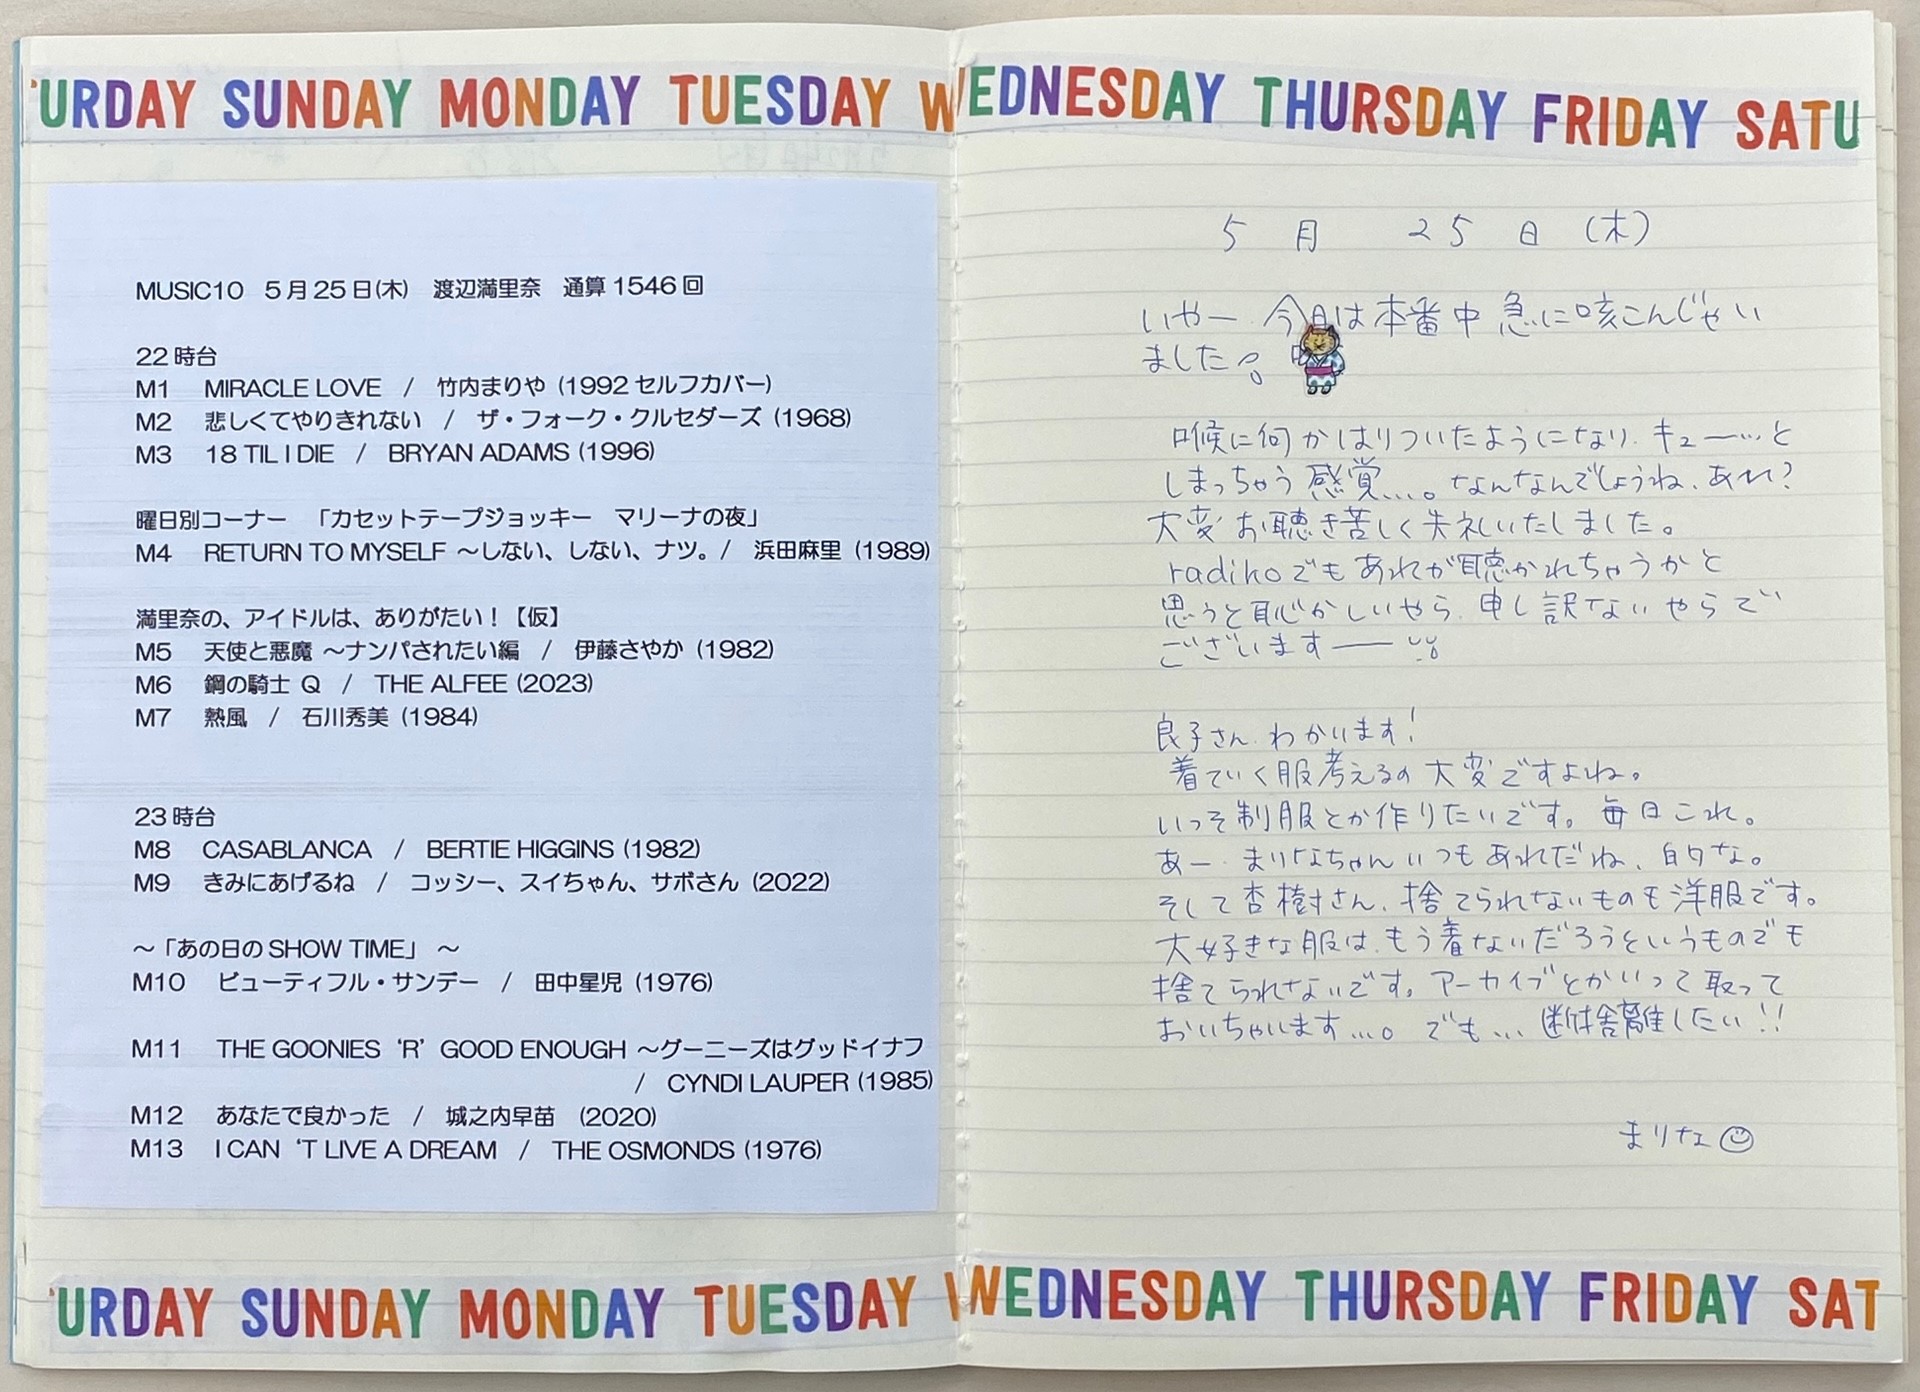 URDAY SUNDAY MONDAY TUESDAY WEDNESDAY THURSDAY FRIDAY SATU
MUSIC10 5月25日(木) 渡辺満里奈 通算1546回
22時台
M1 MIRACLE LOVE / 竹内まりや (1992 セルフカバー)
M2 悲しくてやりきれない / ザ・フォーク・クルセダーズ (1968)
M3 18 TIL I DIE / BRYAN ADAMS (1996)
曜日別コーナー 「カセットテープジョッキー マリーナの夜」
M4 RETURN TO MYSELF ～しない、しない、ナツ。/ 浜田麻里 (1989)
満里奈の、アイドルは、ありがたい！【仮】
M5 天使と悪魔 ～ナンパされたい編 / 伊藤さやか (1982)
M6 鋼の騎士 Q / THE ALFEE (2023)
M7 熱風 / 石川秀美 (1984)
23時台
M8 CASABLANCA / BERTIE HIGGINS (1982)
M9 きみにあげるね / コッシー、スイちゃん、サボさん (2022)
～「あの日の SHOW TIME」 ～
M10 ビューティフル・サンデー / 田中星児 (1976)
M11 THE GOONIES ‘R’ GOOD ENOUGH ～グーニーズはグッドイナフ
/ CYNDI LAUPER (1985)
M12 あなたで良かった / 城之内早苗 (2020)
M13 I CAN ‘T LIVE A DREAM / THE OSMONDS (1976)
5月 25日 (木)
いやー、今日は本番中 急に咳こんじゃい
ました
喉に何かはりついたようになり、キュー…と
しまっちゃう感覚…。なんなんでしょうね、あれ?
大変お聴き苦しく失礼いたしました。
radikoでもあれが聴かれちゃうかと
思うと恥かしいやら、申し訳ないやらで
ございますー
良子さん、わかります!
着ていく服考えるの大変ですよね。
いっそ制服とか作りたいです。毎日これ。
あー、まりなちゃんいつもあれだね、的な。
そして杏樹さん、捨てられないものも洋服です。
大好きな服は、もう着ないだろうというものでも
捨てられないです。アーカイブとかいって取って
おいちゃいます…。でも…断捨離したい!!
まりな
URDAY SUNDAY MONDAY TUESDAY WEDNESDAY THURSDAY FRIDAY SAT